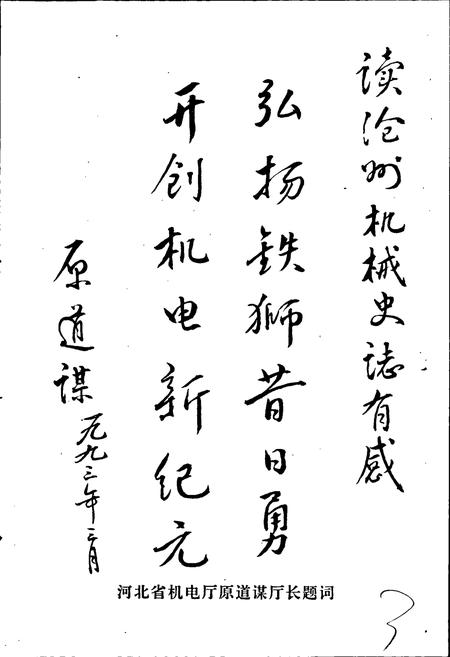 读沧州机械史誌有感
弘扬鉄獅昔日勇
开创机电新纪元
原道谋
一九九三年三月
河北省机电厅原道谋厅长题词